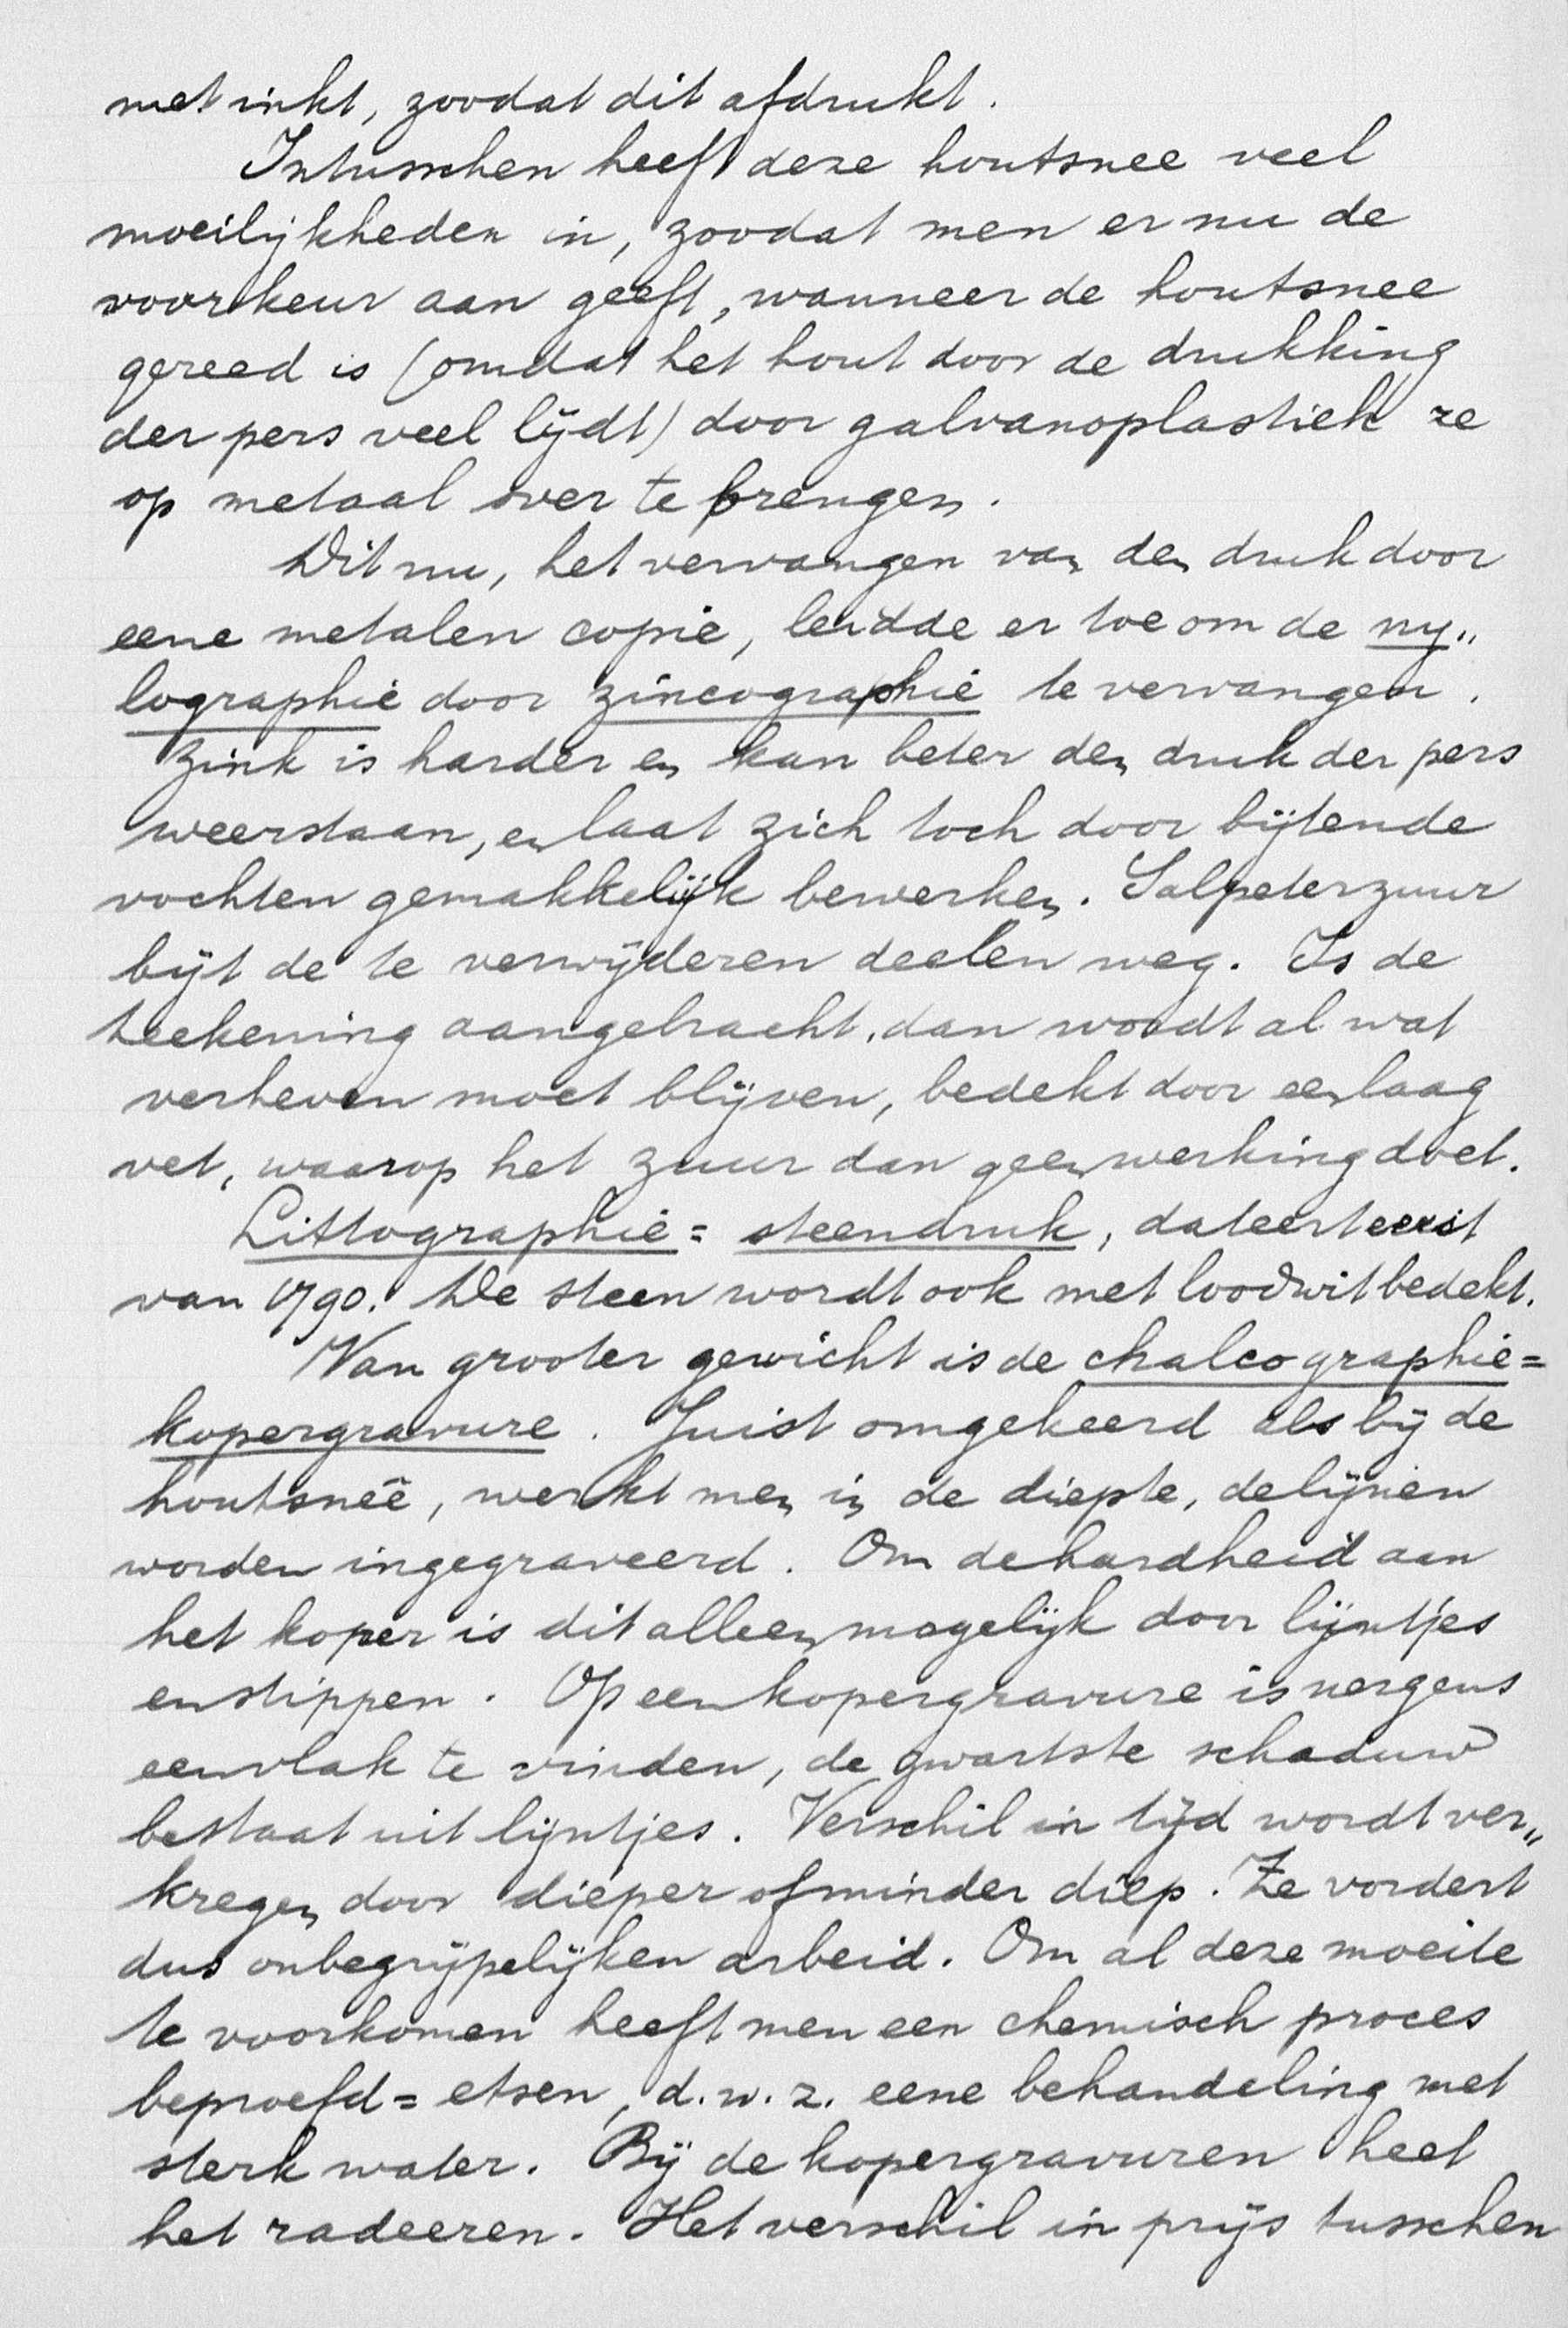 met inkt, zoodat dit afdrukt.
Intusschen heeft deze houtsnee veel
moeilijkheden in, zoodat men er nu de
voorkeur aan geeft, wanneer de houtsnee
gereed is (omdat het hout door de drukking
der pers veel lijdt) door galvanoplastiek ze
op metaal over te brengen.
Dit nu, het vervangen van den druk door
eene metalen copie, leidde er toe om de xy„
lographie door zincographie te vervangen.
Zink is harder en kan beter den druk der pers
weerstaan, en laat zich toch door bijtende
vochten gemakkelijk bewerken. Salpeterzuur
bijt de te verwijderen deelen weg. Is de
teekening aangebracht, dan wordt al wat
verheven moet blijven, bedekt door een laag
vet, waarop het zuur dan geen werking doet.
Littographie = steendruk, dateert eerst
van 1790. De steen wordt ook met loodwit bedekt.
Van grooter gewicht is de chalcographie =
kopergravure. Juist omgekeerd als bij de
houtsneê, werkt men in de diepte, de lijnen
worden ingegraveerd. Om de hardheid aan
het koper is dit alleen mogelijk door lijntjes
en stippen. Op een kopergravure is nergens
een vlak te vinden, de zwartste schaduw
bestaat uit lijntjes. Verschil in tijd wordt ver„
kregen door dieper of minder diep. Ze vordert
dus onbegrijpelijken arbeid. Om al deze moeite
te voorkomen heeft men een chemisch proces
beproefd = etsen, d.w.z. eene behandeling met
sterk water. Bij de kopergravuren heet
het radeeren. Het verschil in prijs tusschen